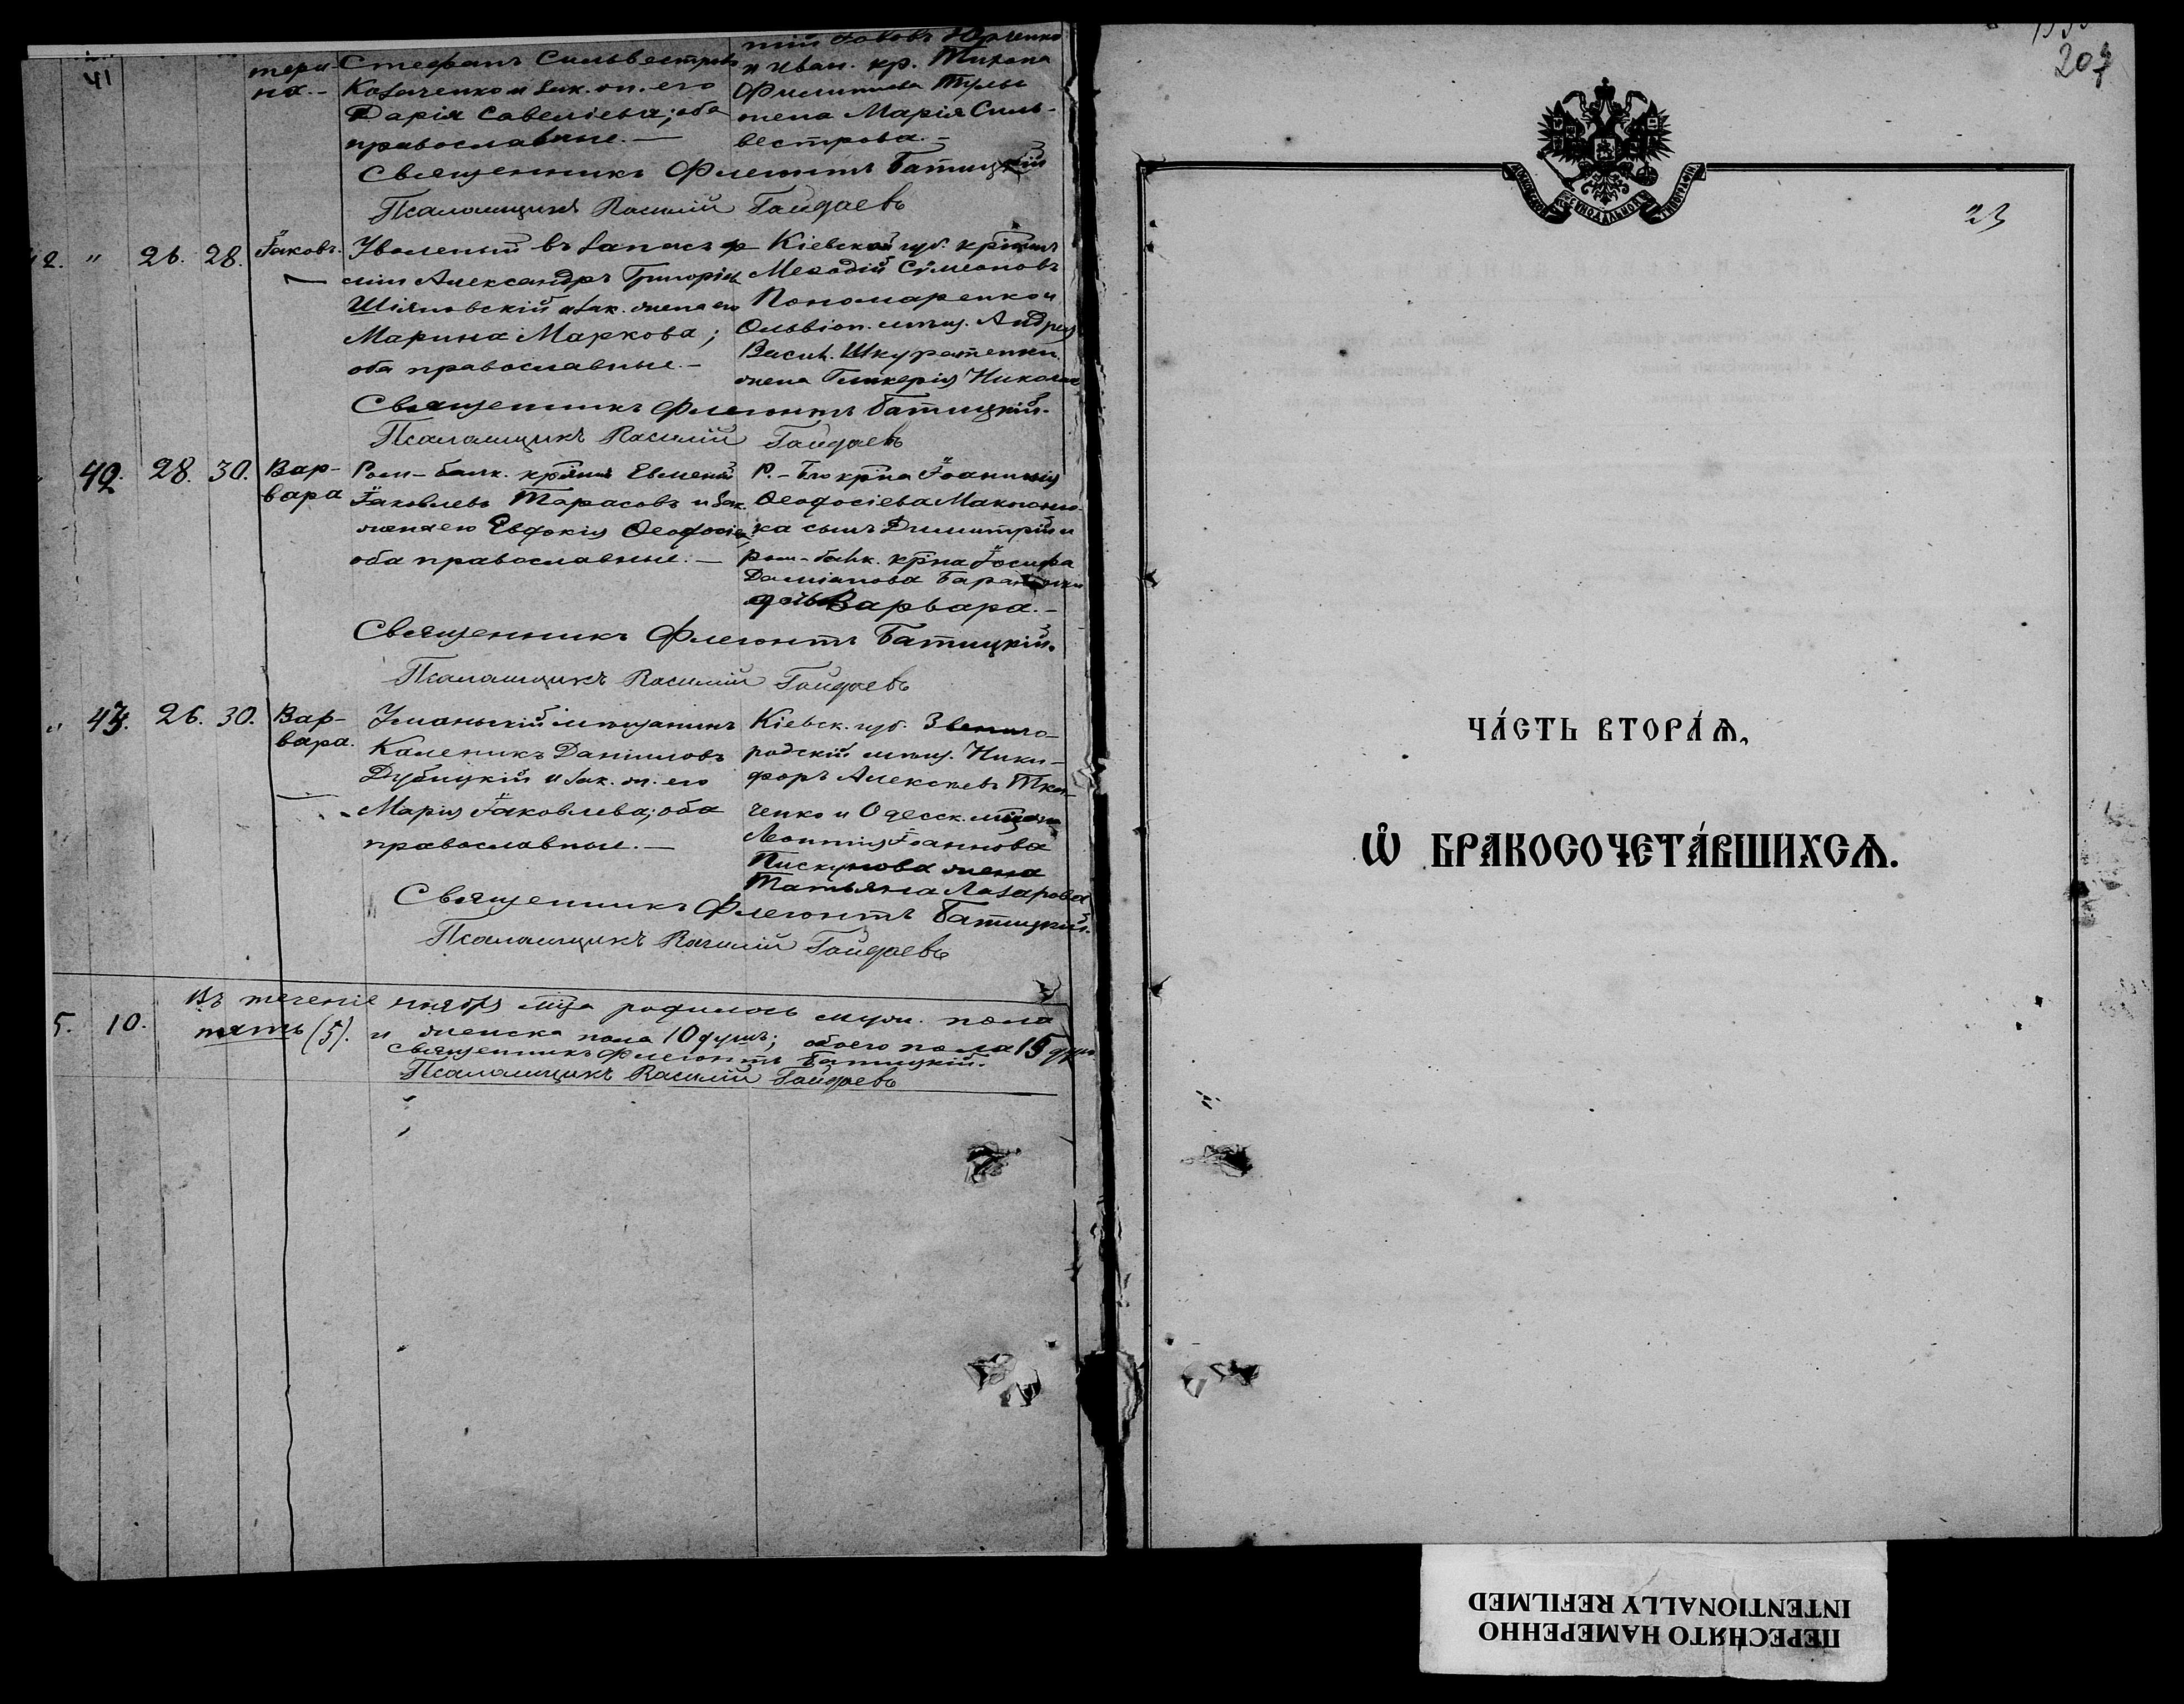 41
тери-
на.-
Стефанъ Сильвестровъ
Козаченко и зак. ж. его
Дарія Савеліева; оба
православные.-
тій Іаковъ Юрченко
и Иван. кр. Тихона
Филиппова Тулы
жена Марія Силь-
вестрова.-
Священникъ Флегонтъ Батицкій
Псаломщикъ Василій Гайдаевъ
42. " 26. 28. Іаковъ.
Уволеный въ запасъ ф
Александръ Григоріев
Шіяновскій и зак. жена его
Марина Маркова;
оба православные.-
Кіевской губ. крнинъ
Меѳодій Сѵмеоновъ
Пономаренко и
Ольвіоп. мѣщ. Андрея
Васил. Шкуратенки
жена Гликерія Николае
Священникъ Флегонтъ Батицкій.
Псаломщикъ Василій Гайдаевъ
42. 28. 30. Вар-
вара
Ром-балк. крнинъ Евменій
Іаковлевъ Тарасовъ и зак.
жена его Евдокія Ѳеодосіев
оба православные.-
Р.-б. крна Іоанникія
Ѳеодосіева
ка сынъ Димитрій и
ром-балк. крна Іосифа
Даміанова
дочь Варвара.-
Священникъ Флегонтъ Батицкій.
Псаломщикъ Василій Гайдаевъ
" 43. 26. 30. Вар-
вара.
Уманьскій мѣщанинъ
Каленикъ Даніиловъ
Дубицкій и зак. ж. его
Марія Іаковлева; оба
православные.-
Кіевск. губ. Звениго-
родскій мѣщ. Ники-
форъ Алексѣевъ Тка-
ченко и Одесск. мѣщан
Леонтія Іоаннова
Пискунова жена
Татьяна Лазарова
Священникъ Флегонтъ Батицкій.
Псаломщикъ Василій Гайдаевъ
5. 10.
Въ теченіе ноября мца родилось муж. пола
пять (5). и женска пола 10 душъ; обоего пола 15 душ
Священникъ Флегонтъ Батицкій.
Псаломщикъ Василій Гайдаевъ
207
23
МОСКОВСКОЙ СѴНОДАЛЬНОЙ ТИПОГРАФІИ
ЧА́СТЬ ВТОРА́Ѧ,
Ѽ БРАКОСОЧЕТА́ВШИХСѦ.
ПЕРЕСНЯТО НАМЕРЕННО
INTENTIONALLY REFILMED